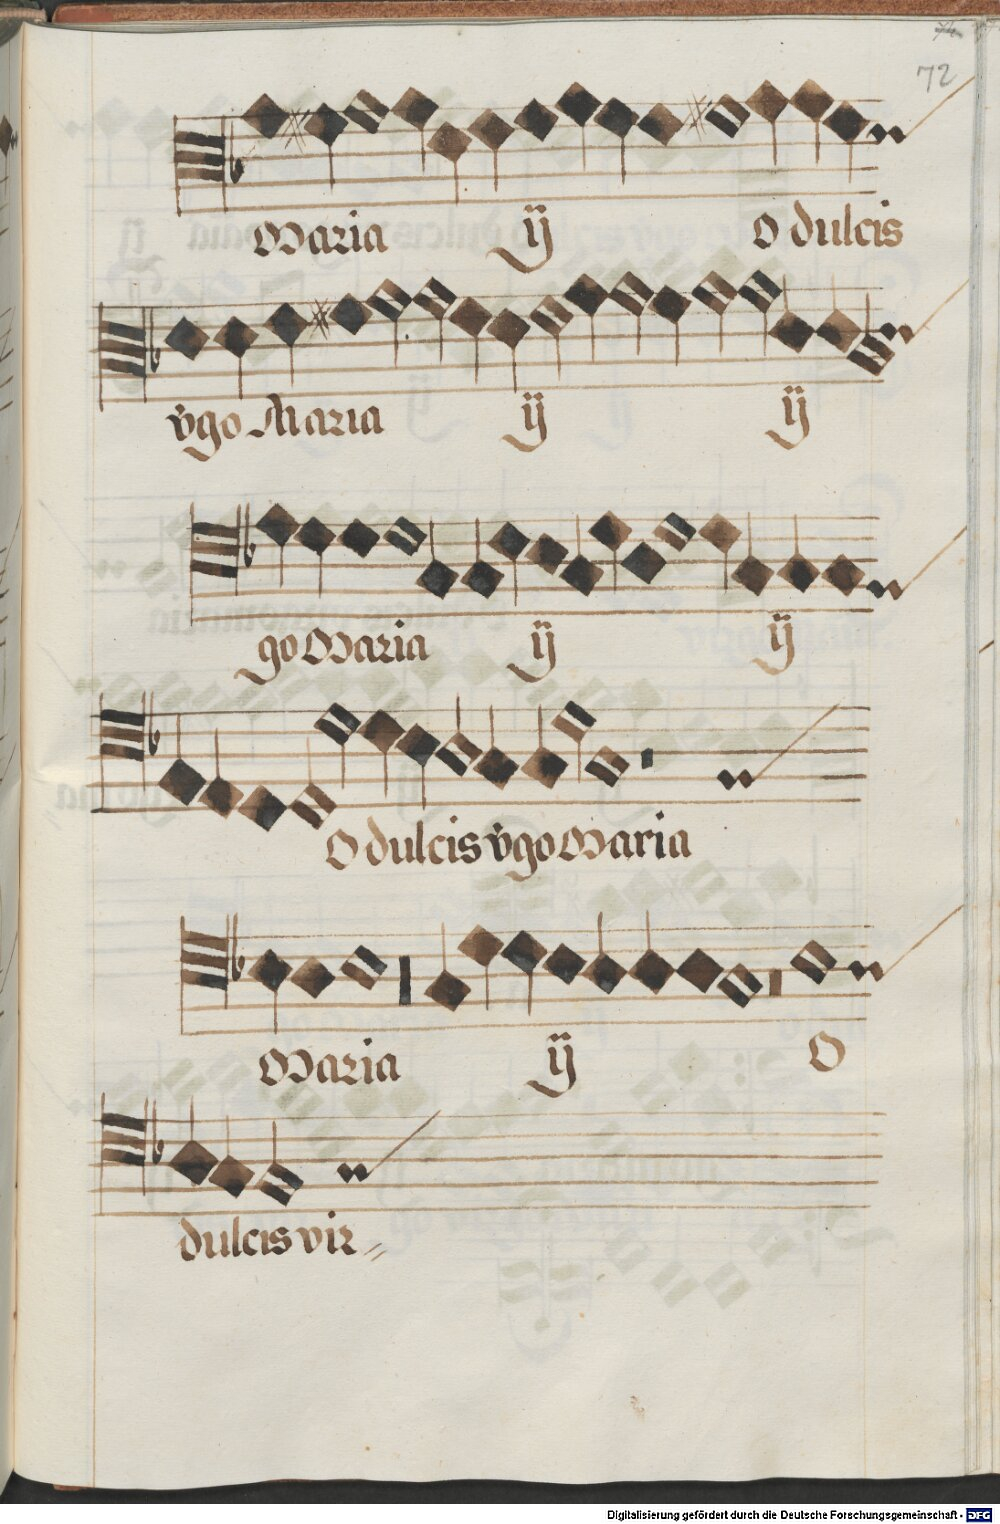 72
Maria ij O dulcis
v̄go Maria ij ij
go Maria ij ij
O dulcis v̄go Maria
Maria ij O
dulcis vir=
Digitalisierung gefördert durch die Deutsche Forschungsgemeinschaft - DFG